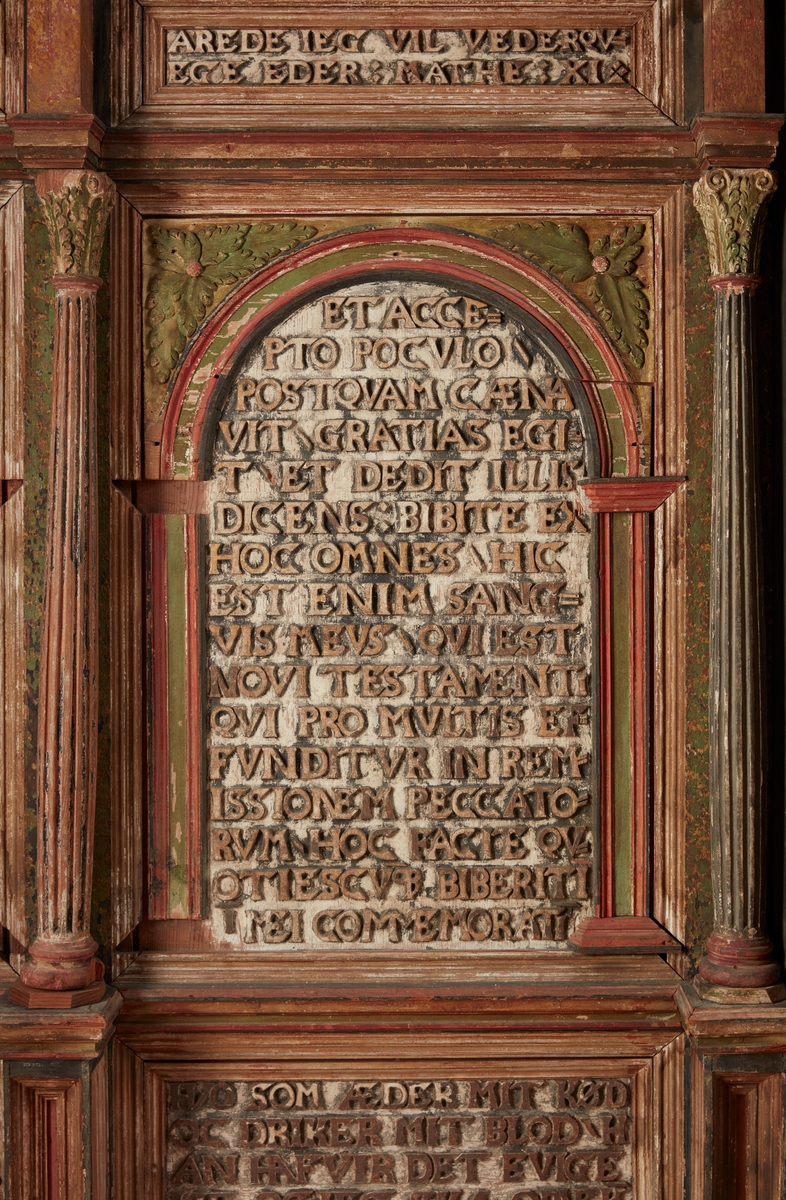 AREDE IEG VIL VEDERQV
EGE EDER : MATHE : XI
ET ACCE=
PTO POCVLO \
POSTQVAM CÆNA
VIT \ GRATIAS EGI-
T \ ET DEDIT ILLIS
DICENS : BIBITE EX
HOC OMNES \ HIC
EST ENIM SANG=
VIS MEVS \ QVI EST
NOVI TESTAMENTI
QVI PRO MVLTIS EF-
FVNDITVR IN REM-
ISSIONEM PECCATO-
RVM \ HOC FACTE QV-
OTIESCVꝗ BIBERITI
I MEI COMMEMORATI
HVO SOM ÆDER MIT KØD
OC DRIKER MIT BLOD \ H
AN HAFVIR DET EVIGE